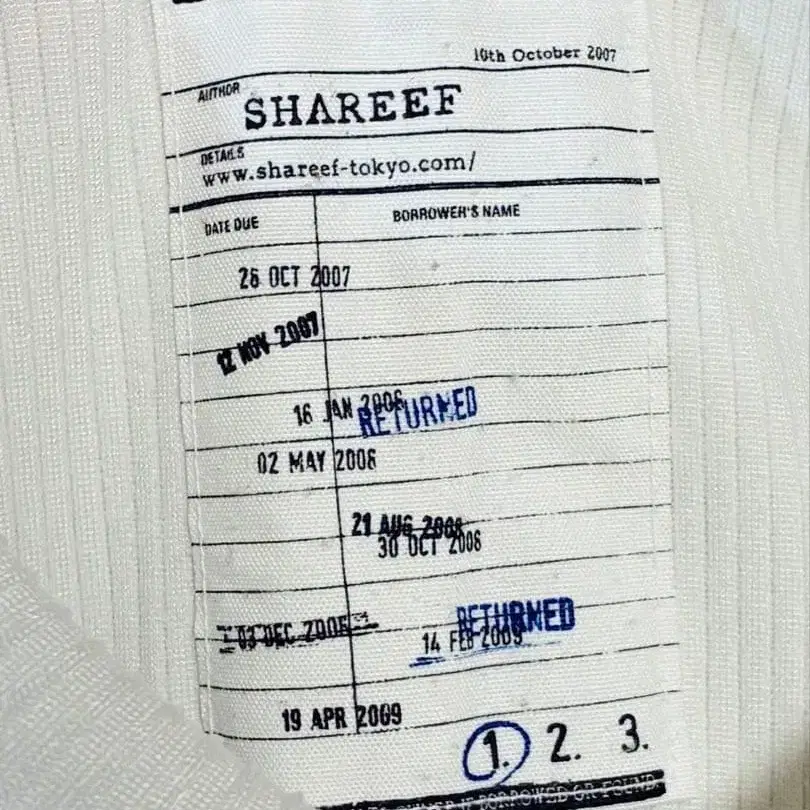 10th October 2007
AUTHOR
SHAREEF
DETAILS
www.shareef-tokyo.com/
DATE DUE BORROWER'S NAME
26 OCT 2007
12 NOV 2007
16 JAN 2008
RETURNED
02 MAY 2008
21 AUG 2008
30 OCT 2008
RETURNED
03 DEC 2008
14 FEB 2009
19 APR 2009
1. 2. 3.
IF BORROWED OR FOUND